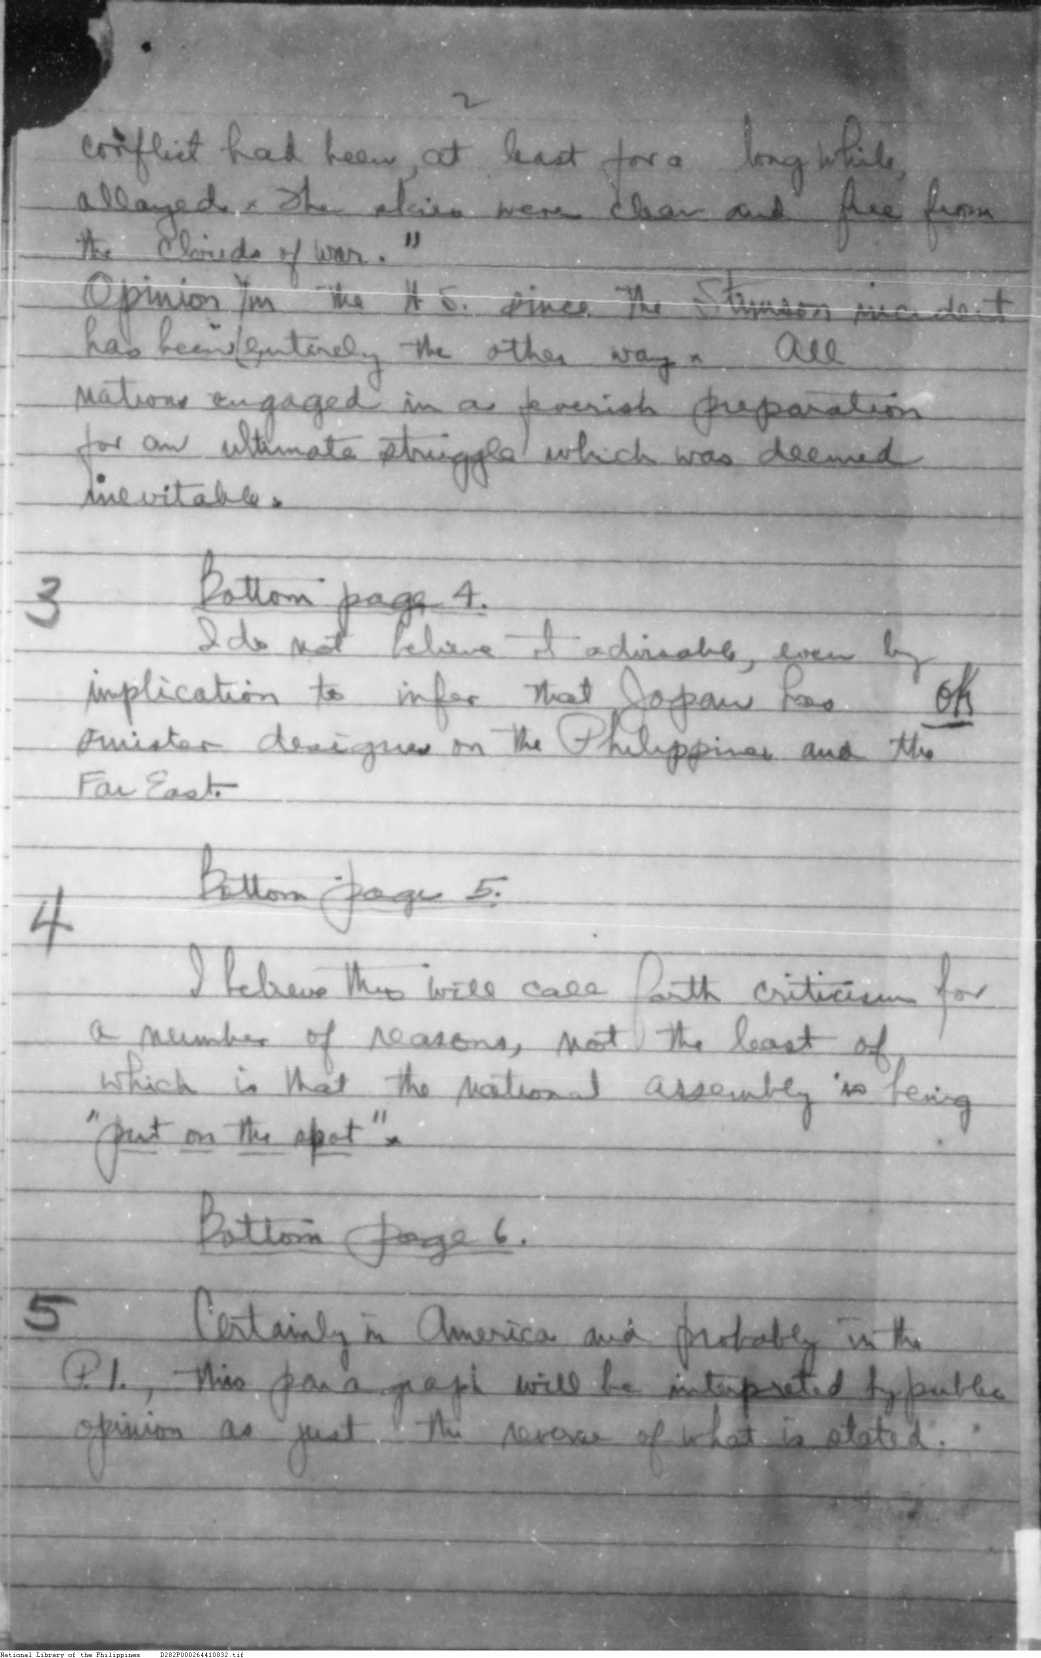 2
conflict had been, at least for a long while,
allayed. The skies were clear and free from
the clouds of war."
Opinion in the U.S. since the Stimson incident
has been entirely the other way. All
nations engaged in a feverish preparation
for an ultimate struggle which was deemed
inevitable.
3 Bottom page 4.
I do not believe it advisable, even by
implication to infer that Japan has OK
sinister designs on the Philippines and the
Far East.
Bottom page 5.
4
I believe this will call forth criticism for
a number of reasons, not the least of
which is that the national assembly is being
"put on the spot".
Bottom page 6.
5 Certainly in America and probably in the
P.I., this paragraph will be interpreted by public
opinion as just the reverse of what is stated.
National Library of the Philippines D282P000264410832.tif